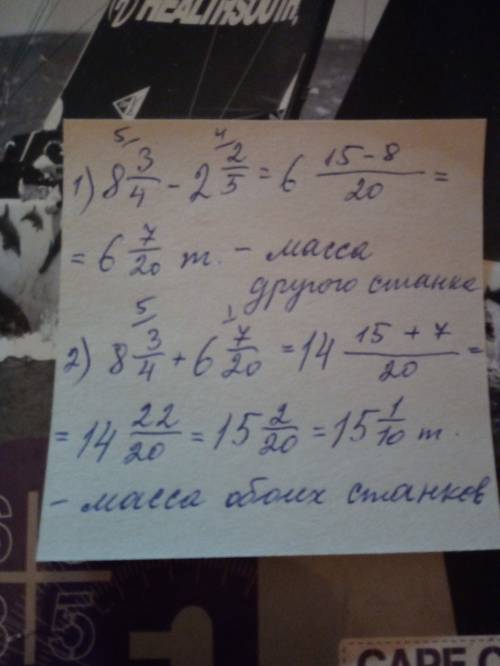 HEALTHSOUTH,
1) 8 3/4 - 2 2/5 = 6 (15-8)/20 =
5/ 4/
= 6 7/20 т. - масса
другого станка
2) 8 3/4 + 6 7/20 = 14 (15+7)/20 =
5/ 1/
= 14 22/20 = 15 2/20 = 15 1/10 т.
- масса обоих станков
5
CAPE C